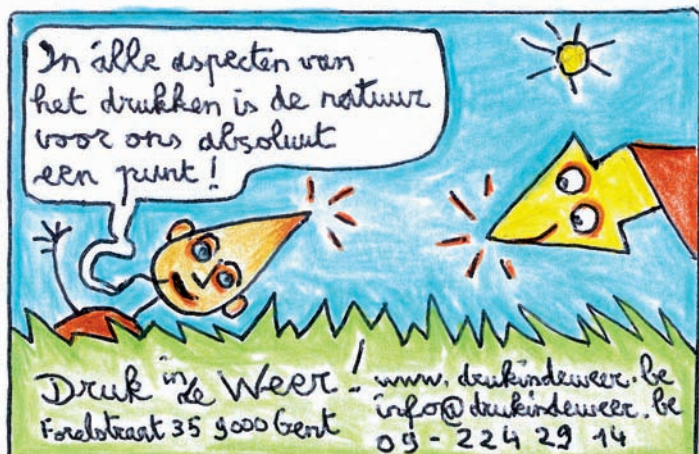 In alle aspecten van
het drukken is de natuur
voor ons absoluut
een punt!
Druk in de Weer!
Forelstraat 35 9000 Gent
www.drukindeweer.be
info@drukindeweer.be
09-224 29 14